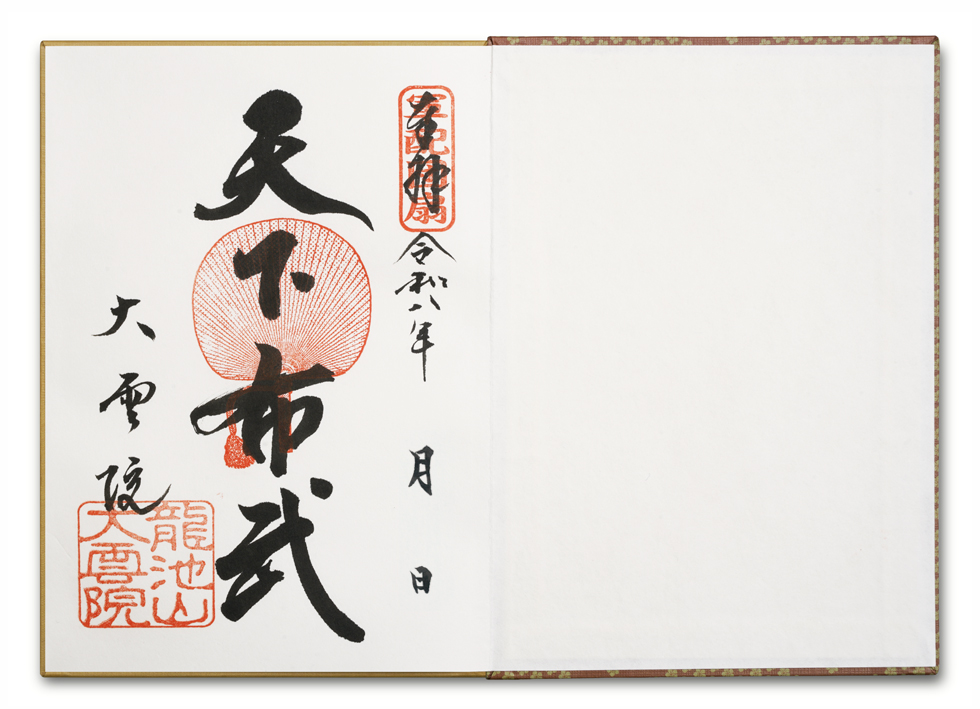 奉拝
令和八年 月 日
天下布武
大雲院
龍池山
大雲院